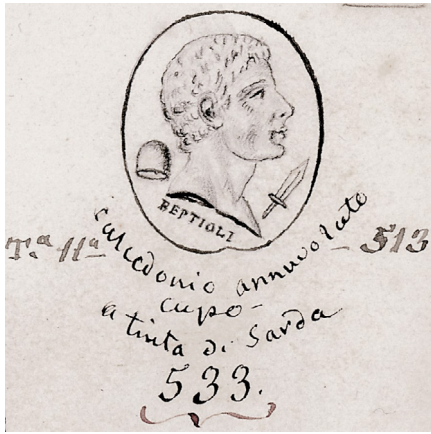 BEPTIOLI
Tª 11ª
calcedonio annuvolato
513
cupo
a tinta di Sarda
533.